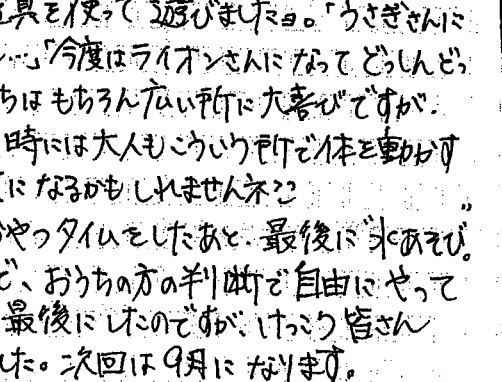 具を使って遊びましたョ。「うさぎさんに
…」「今度はライオンさんになってどっしんどっ
ちはもちろん広い所に大喜びですが、
時には大人もこういう所で体を動かす
になるかもしれませんネ
やつタイムをしたあと、最後に"水あそび"。
で、おうちの方の判断で自由にやって
最後にしたのですが、けっこう皆さん
した。次回は9月になります。